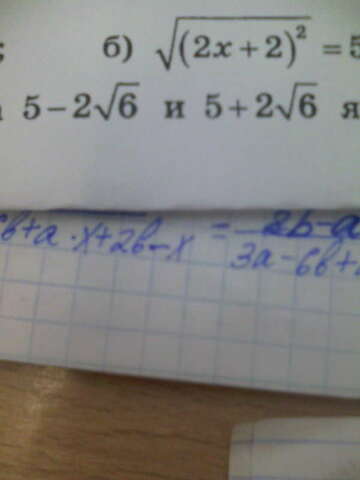 ; б) √(2x+2)² = 5
5−2√6 и 5+2√6 я
в+a·x+2в−x = 2b−a
3a−6в+